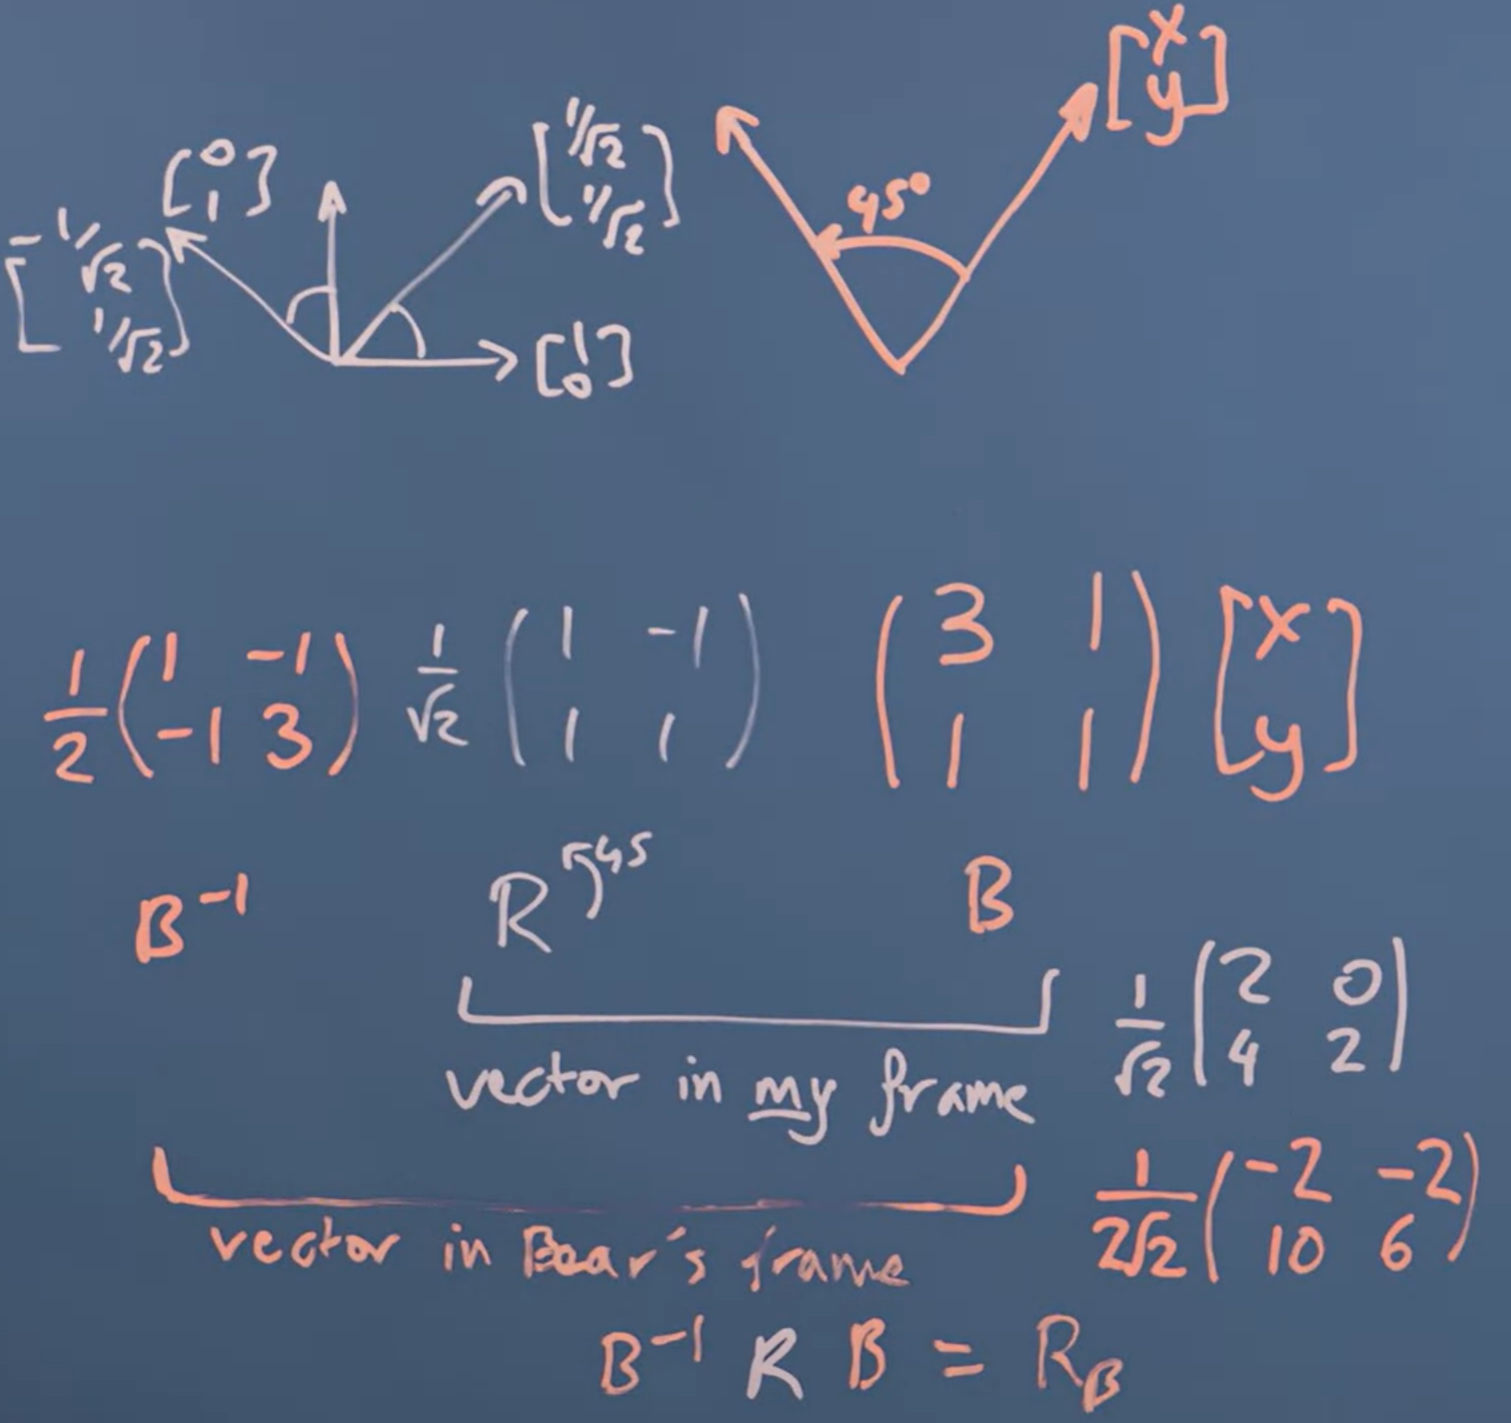 [x
y]
[0
1]
[1/√2
1/√2]
[-1/√2
1/√2]
45°
[1
0]
1/2 (1 -1
-1 3) 1/√2 (1 -1
1 1) (3 1
1 1) [x
y]
B⁻¹ R 45 B
vector in my frame 1/√2 (2 0
4 2)
vector in Bear's frame 1/2√2 (-2 -2
10 6)
B⁻¹ R B = R_B